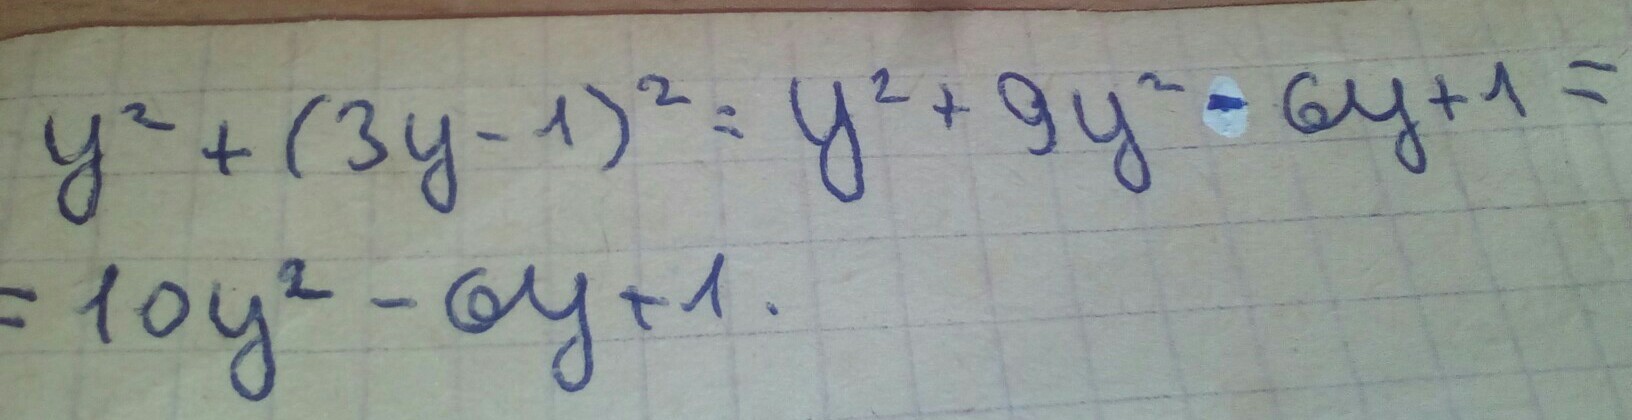 y² + (3y - 1)² = y² + 9y² - 6y + 1 =
= 10y² - 6y + 1.